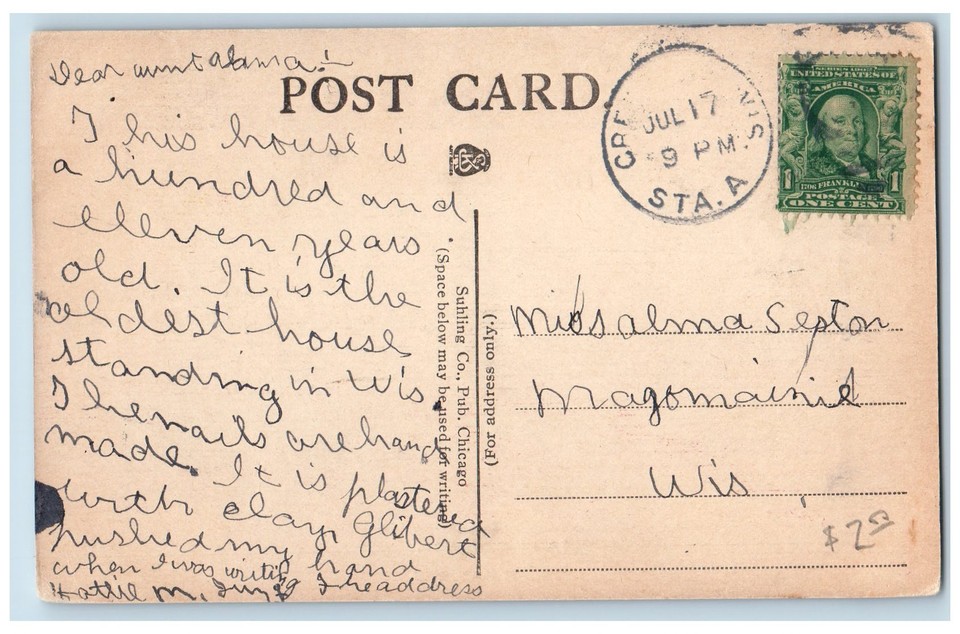 Dear aunt alma:-
POST CARD.
This house is
a hundred and
eleven years
old. It is the
oldest house
standing in Wis.
The nails are hand
made. It is plastered
with clay, Glibert
pushed my hand
when I was writing
Hattie M. the address
(Space below may be used for writing)
Suhling Co., Pub. Chicago
(For address only.)
JUL 17
9 PM.
WIS
STA. A
SERIES 1902
UNITED STATES OF
AMERICA
1706 FRANKLIN 1790
1 POSTAGE 1
ONE CENT
Miss alma Sexton
Magomainie
Wis.
$2.00